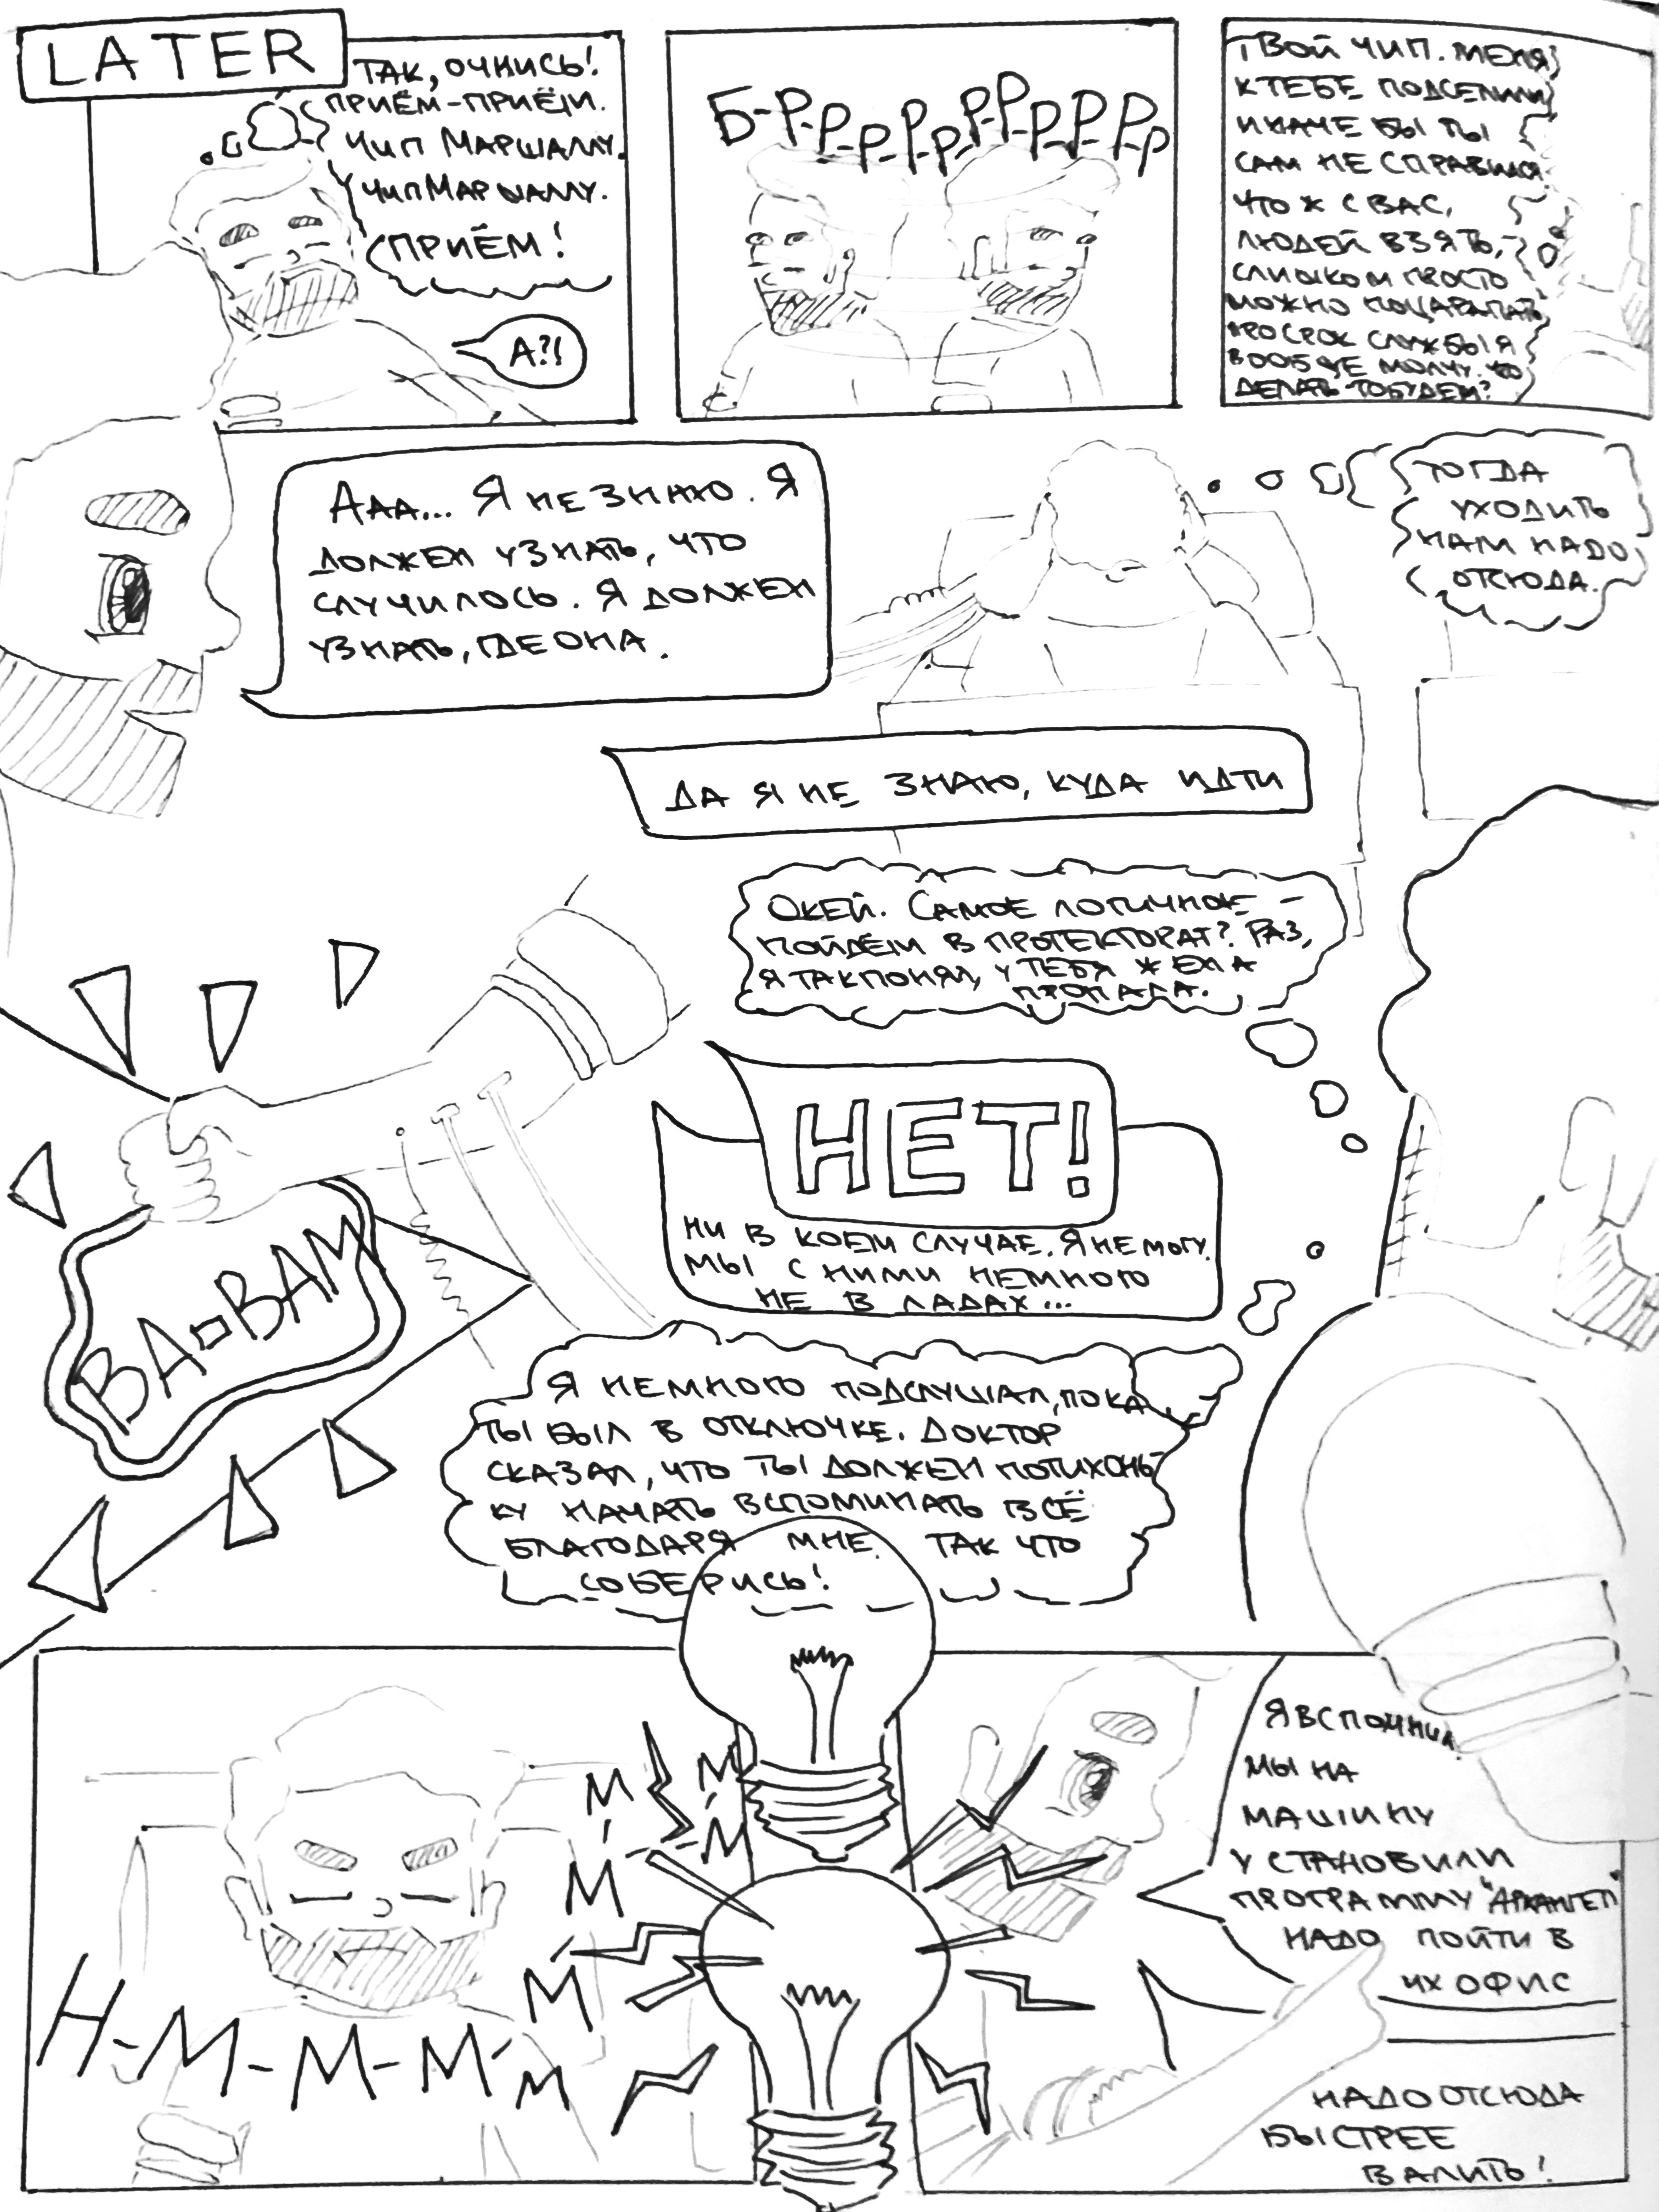 LATER
ТАК, ОЧНИСЬ!
ПРИЁМ-ПРИЁМ.
ЧИП МАРШАЛЛУ.
ЧИП МАРШАЛЛУ.
ПРИЁМ!
А?!
Б-Р-Р-Р-Р-Р-Р-Р-Р-Р-Р-Р
ТВОЙ ЧИП. МЕНЯ
К ТЕБЕ ПОДСЕЛИЛИ
ИНАЧЕ БЫ ТЫ
САМ НЕ СПРАВИЛСЯ.
ЧТО Ж С ВАС,
ЛЮДЕЙ ВЗЯТЬ,-
СЛИШКОМ ПРОСТО
МОЖНО ПОЦАРАПАТЬ,
ПРО СРОК СЛУЖБЫ Я
ВООБЩЕ МОЛЧУ. ЧО
ДЕЛАТЬ ТО БУДЕМ?
ААА... Я НЕ ЗНАЮ. Я
ДОЛЖЕН УЗНАТЬ, ЧТО
СЛУЧИЛОСЬ. Я ДОЛЖЕН
УЗНАТЬ, ГДЕ ОНА.
ТОГДА
УХОДИТЬ
НАМ НАДО
ОТСЮДА.
ДА Я НЕ ЗНАЮ, КУДА ИДТИ
ОКЕЙ. САМОЕ ЛОГИЧНОЕ -
ПОЙДЁМ В ПРОТЕКТОРАТ? РАЗ,
Я ТАК ПОНЯЛ, У ТЕБЯ ЖЕНА
ПРОПАЛА.
НЕТ!
НИ В КОЕМ СЛУЧАЕ. Я НЕ МОГУ.
МЫ С НИМИ НЕМНОГО
НЕ В ЛАДАХ...
BA-BAM
Я НЕМНОГО ПОДСЛУШАЛ, ПОКА
ТЫ БЫЛ В ОТКЛЮЧКЕ. ДОКТОР
СКАЗАЛ, ЧТО ТЫ ДОЛЖЕН ПОТИХОНЬ-
КУ НАЧАТЬ ВСПОМИНАТЬ ВСЁ
БЛАГОДАРЯ МНЕ. ТАК ЧТО
СОБЕРИСЬ!
Н-М-М-М-М-М-М-М-М-М
Я ВСПОМНИЛ.
МЫ НА
МАШИНУ
УСТАНОВИЛИ
ПРОГРАММУ "АРХАНГЕЛ"
НАДО ПОЙТИ В
ИХ ОФИС
НАДО ОТСЮДА
БЫСТРЕЕ
ВАЛИТЬ!